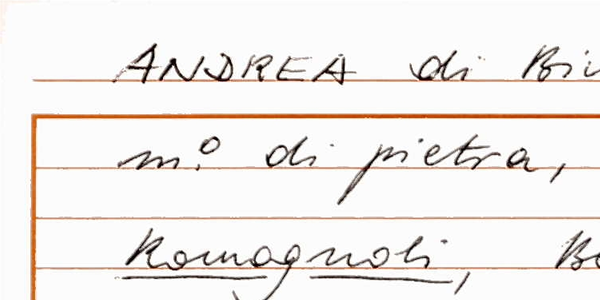 ANDREA di
m.º di pietra,
Romagnoli,